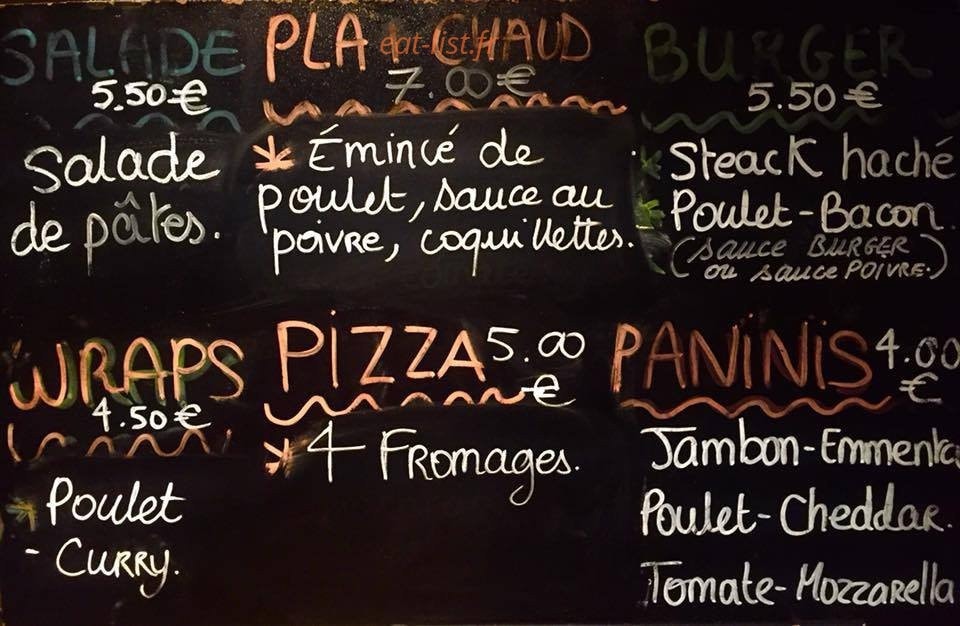 SALADE
5.50€
Salade
de pâtes.
PLAT CHAUD
eat-list.fr
7.00€
Émincé de
poulet, sauce au
poivre, coquillettes.
BURGER
5.50€
Steack haché
Poulet-Bacon.
(sauce BURGER
ou sauce POIVRE.)
WRAPS
4.50€
Poulet
- CURRY.
PIZZA 5.00
€
4 FROMAGES.
PANINIS 4.00
€
Jambon-Emmenta
Poulet-Cheddar.
Tomate-Mozzarella